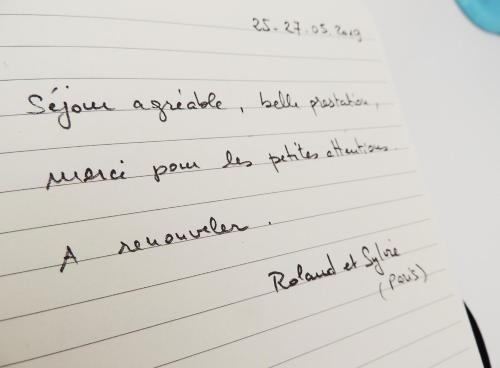 25-27.05.2019
Séjour agréable, belle prestation,
merci pour les petites attentions.
A renouveler.
Roland et Sylvie
(Paris)